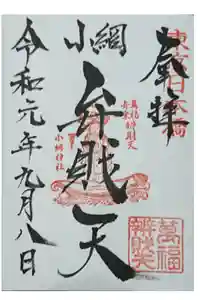 奉拝
東京日本橋
小網
弁財天
萬福
舟乗弁財天
小網神社
萬福
辨財天
令和元年九月八日